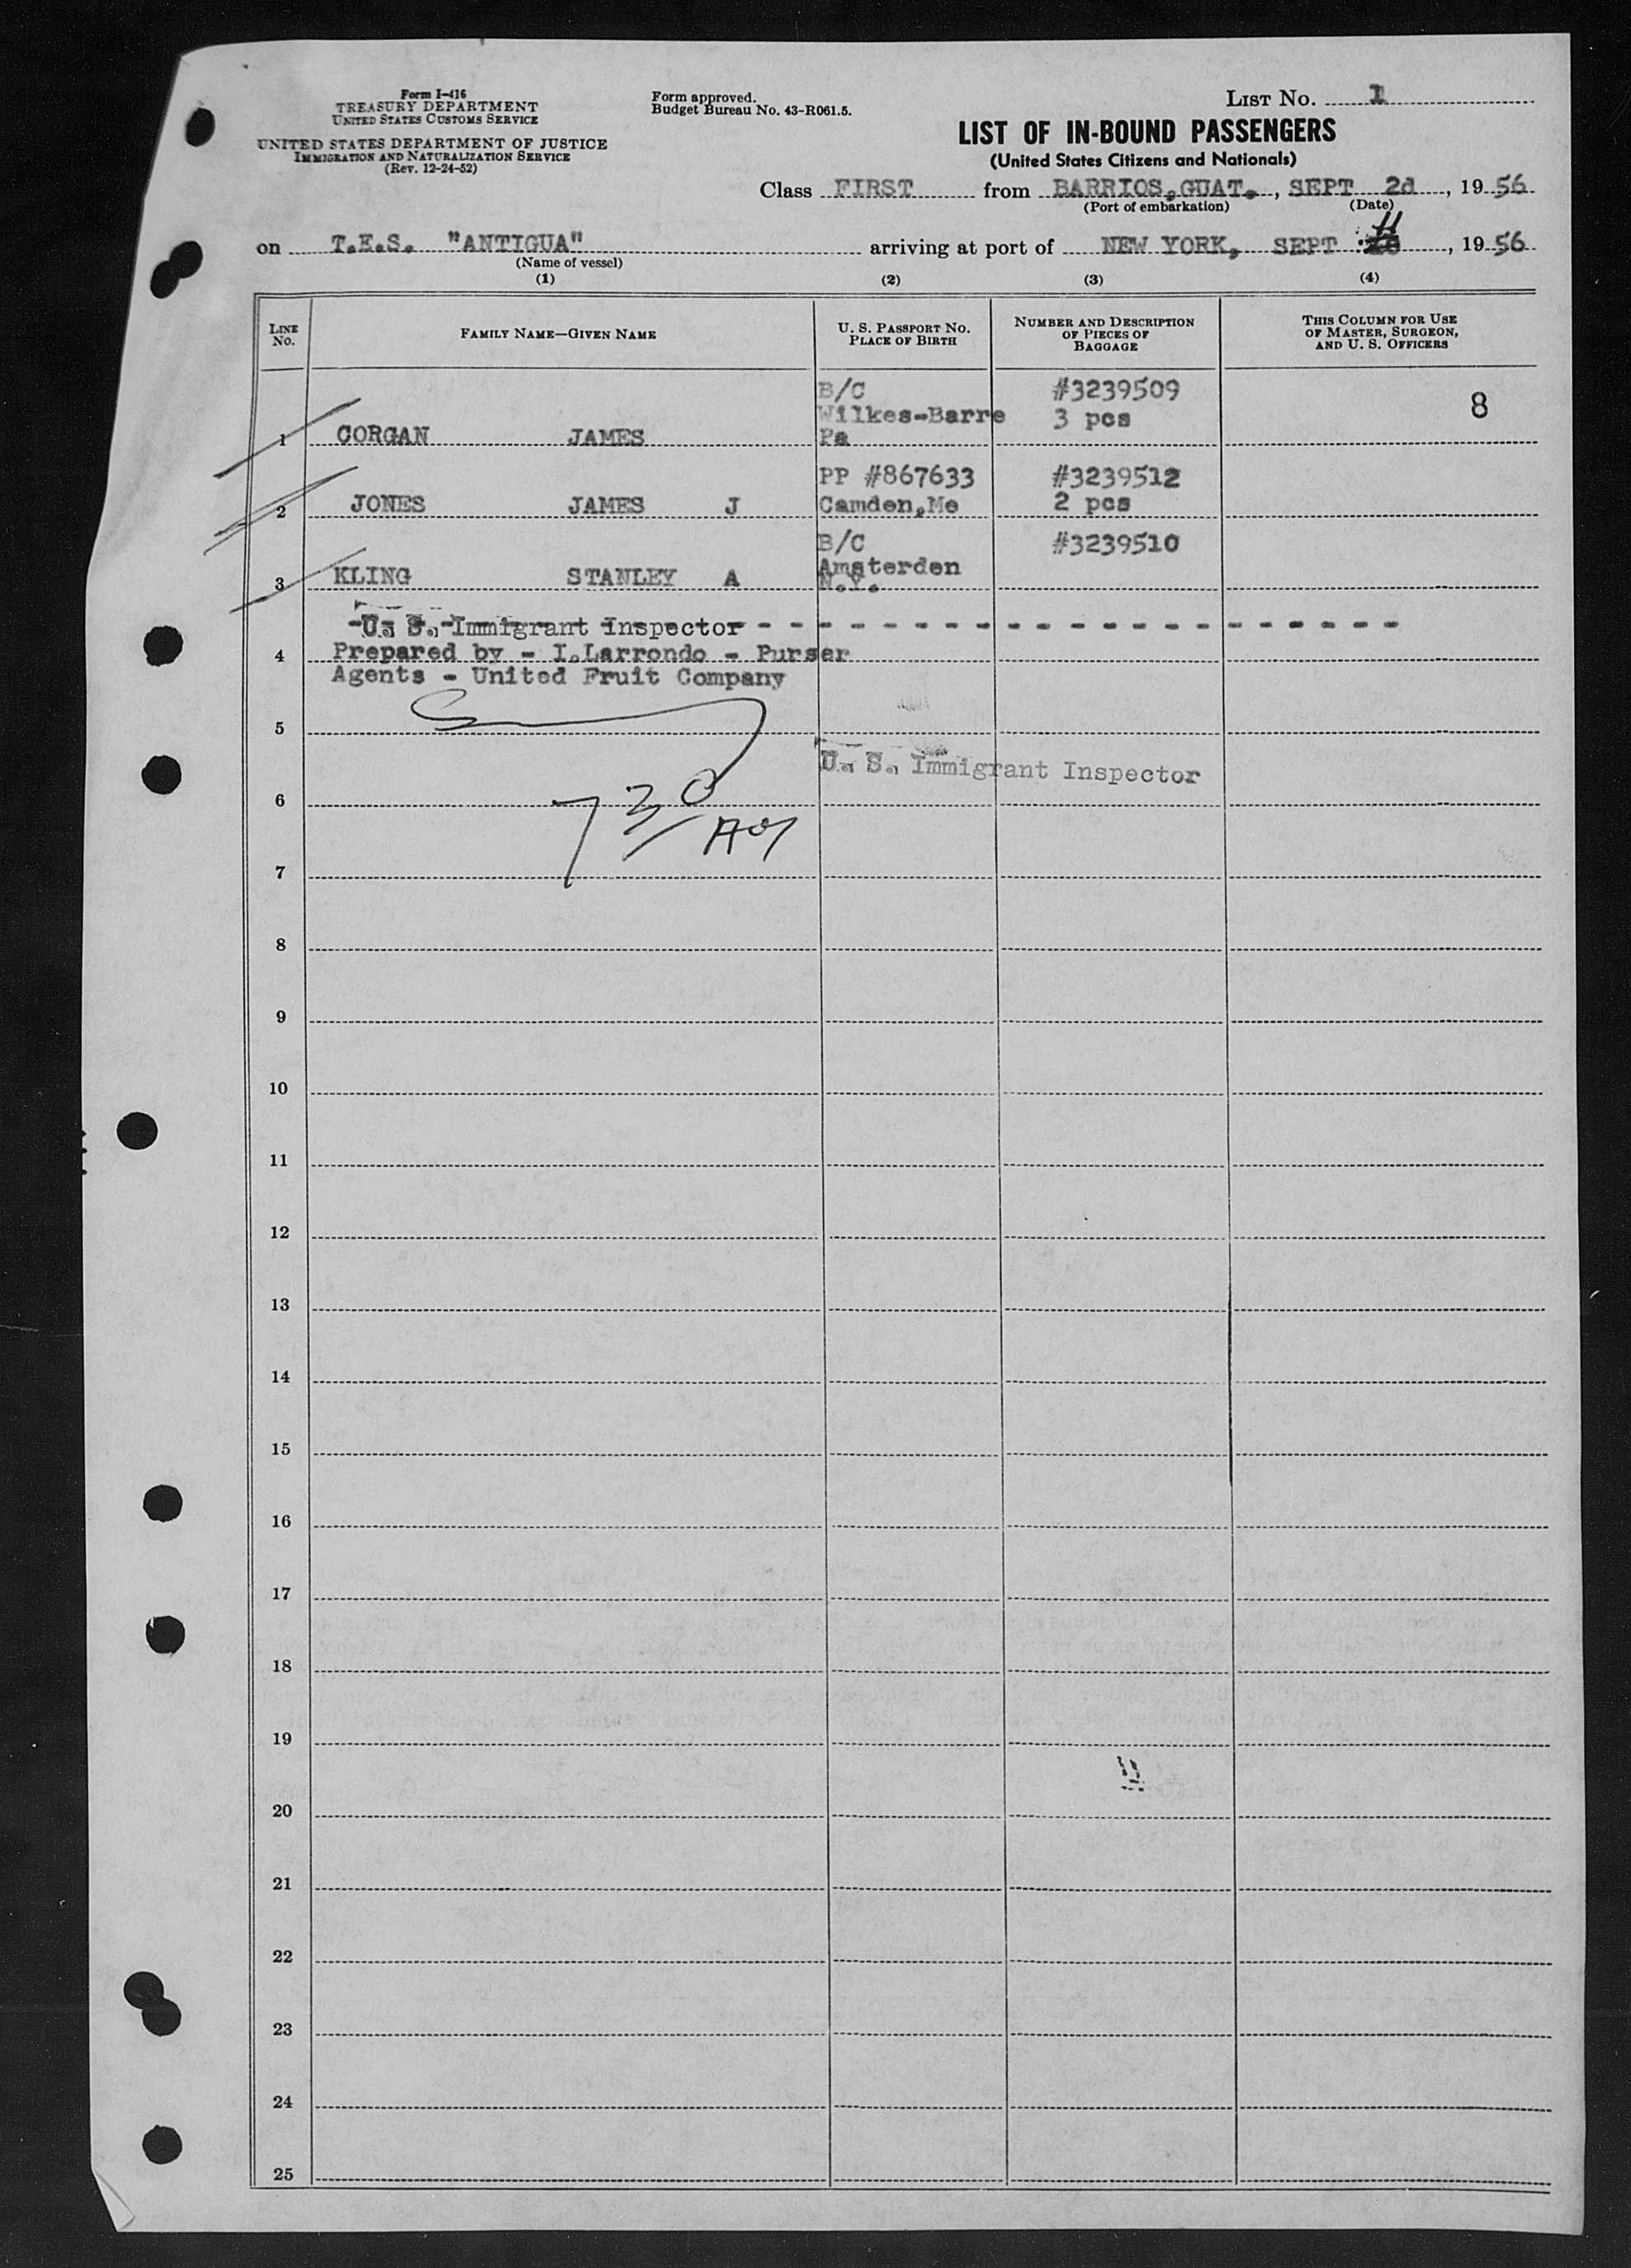 Form I-416
TREASURY DEPARTMENT
UNITED STATES CUSTOMS SERVICE
UNITED STATES DEPARTMENT OF JUSTICE
IMMIGRATION AND NATURALIZATION SERVICE
(Rev. 12-24-52)
Form approved.
Budget Bureau No. 43-R061.5.
LIST NO. 1
LIST OF IN-BOUND PASSENGERS
(United States Citizens and Nationals)
Class FIRST from BARRIOS,GUAT., SEPT 2d, 1956
(Port of embarkation) (Date)
on T.E.S. "ANTIGUA" arriving at port of NEW YORK, SEPT, 1956
(Name of vessel)
(1) (2) (3) (4)
LINE NO. FAMILY NAME—GIVEN NAME U. S. PASSPORT NO. PLACE OF BIRTH NUMBER AND DESCRIPTION OF PIECES OF BAGGAGE THIS COLUMN FOR USE OF MASTER, SURGEON, AND U. S. OFFICERS
B/C #3239509 8
Wilkes-Barre 3 pcs
1 CORGAN JAMES Pa
PP #867633 #3239512
2 JONES JAMES J Camden,Me 2 pcs
B/C #3239510
Amsterden
3 KLING STANLEY A N.Y.
U. S. Immigrant Inspector
4 Prepared by - I.Larrondo - Purser
Agents - United Fruit Company
5
U. S. Immigrant Inspector
6 730
7
8
9
10
11
12
13
14
15
16
17
18
19
20
21
22
23
24
25